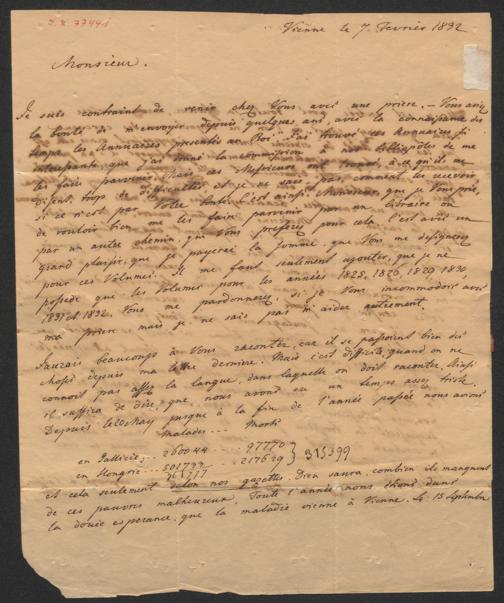 J. 8. 77441
Vienne le 7. Fevrier 1832
Monsieur.
Je suis contraint de venir chez Vous avec une prière. – Vous aviez
la bonté de m'envoyer depuis quelques ans avec la connaissance des
temps les Annuaires presentés au Roi. J'ai trouvé ces Annuaires si
interessants que j'ai donné la commission à nos Bibliopoles de me
les faire parvenir. Mais ces Messieurs ont trouvé, à ce qu'ils me
disent, trop de difficultés, et je ne sais pas, comment les recevoir,
si ce n'est par Votre bonté. C'est ainsi, Monsieur, que je Vous prie,
de vouloir bien me les faire parvenir par un libraire ou
par un autre chemin, que Vous preferez pour cela. C'est avec un
grand plaisir, que je payerai la somme, que Vous me designerez
pour ces Volumes. Il me faut seulement ajouter, que je ne
possede que les Volumes pour les années 1825, 1826, 1829, 1830,
1831 et 1832. Vous me pardonnerez, si je Vous incommodois avec
ma prière mais je ne sais pas m'aider autrement.
J'aurais beaucoup à Vous raconter, car il se passoient bien des
choses depuis ma lettre dernière. Mais c'est difficile, quand on ne
connoit pas assez la langue, dans laquelle on doit raconter. Ainsi
il suffira de dire, que nous avons eu un temps assez triste.
Depuis le May jusque à la fin de l'année passée nous avions
malades... morts
en Gallicie... 260044 ... 97770 } 315399
en Hongrie... 501777 ... 217629
et cela seulement selon nos gazettes. Dieu saura, combien ils manquent
de ces pauvres malheureux. Toute l'année nous étions dans
la douce esperance, que la maladie vienne à Vienne. Le 15 Septembre